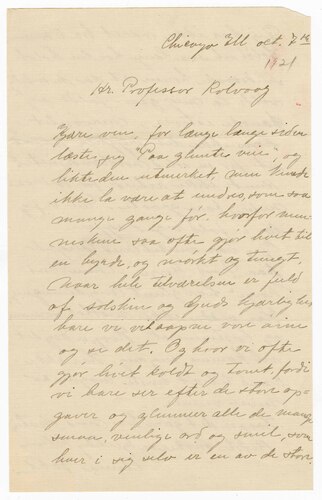 Chicago Ill oct. 7th
1921
Hr. Professor Rolvaag
Kjære ven, for længe længe siden
læste jeg "Paa glemte veie", og
likte den utmerket, men kunde
ikke la være at undes, som saa
mange gange før, hvorfor men-
neskene saa ofte gjør livet til
en byrde, og mørkt og tungt,
naar hele tilværelsen er fuld
af solskin og Guds kjærlighet
bare vi vil aapne vore øine
og se det. Og hvor vi ofte
gjør livet koldt og tomt, fordi
vi bare ser efter de store op-
gaver og glemmer alle de mange
smaa, venlige ord og smil, som
hver i sig selv er en av de store